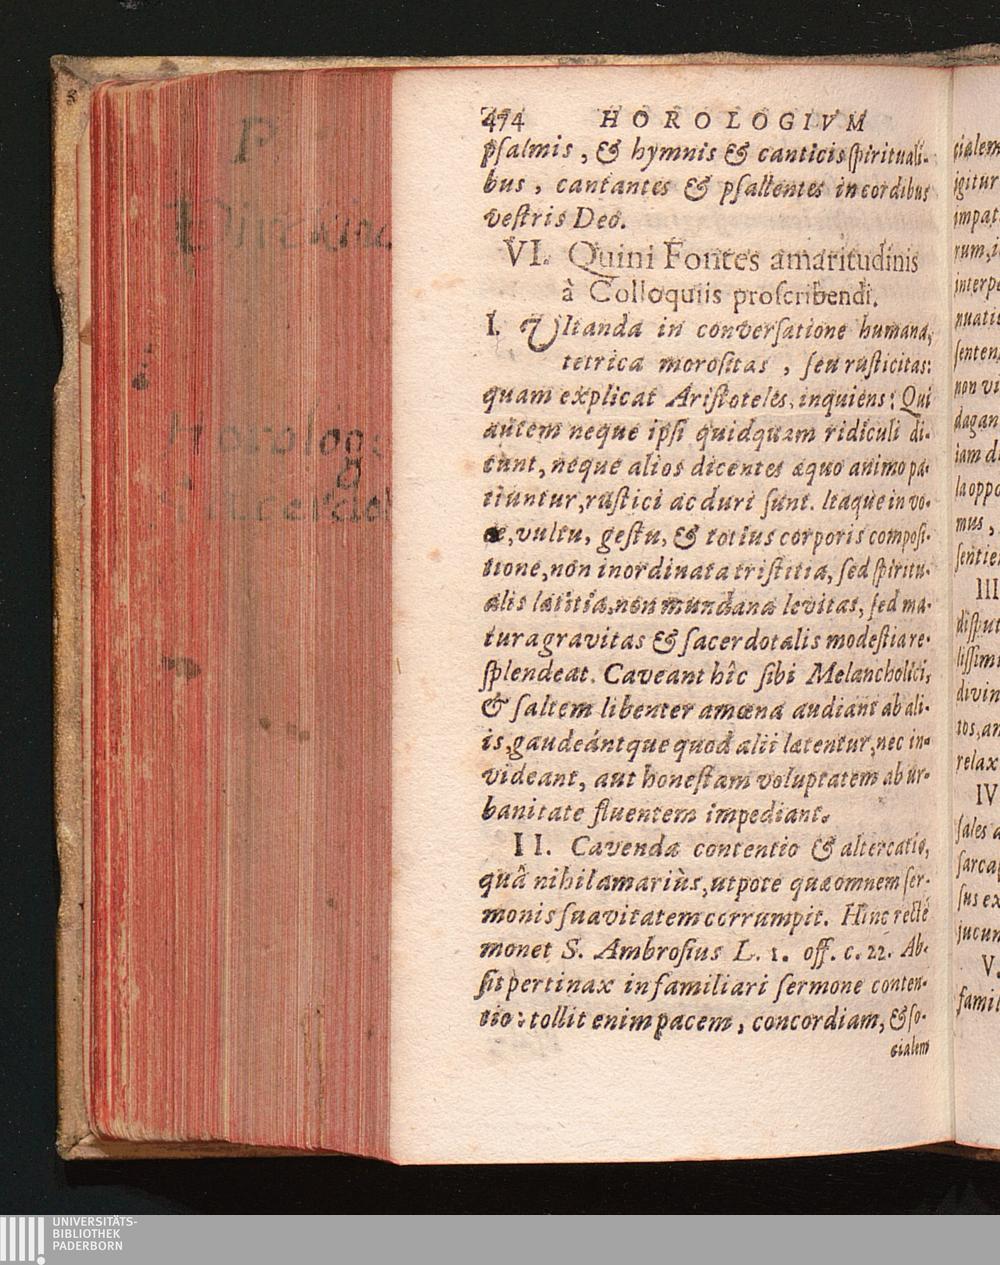 474 HOROLOGIVM
pſalmis, & hymnis & canticis ſpirituali-
bus, cantantes & pſallentes in cordibus
veſtris Deo.
VI. Quini Fontes amaritudinis
à Colloquiis proſcribendi.
I. Vitanda in converſatione humana,
tetrica moroſitas, ſeu ruſticitas:
quam explicat Ariſtoteles, inquiens: Qui
autem neque ipſi quidquam ridiculi di-
cunt, neque alios dicentes æquo animo pa-
tiuntur, ruſtici ac duri ſunt. Itaque in vo-
ce, vultu, geſtu, & totius corporis compoſi-
tione, non inordinata triſtitia, ſed ſpiritu-
alis lætitia, non mundana levitas, ſed ma-
tura gravitas & ſacerdotalis modeſtia re-
ſplendeat. Caveant hîc ſibi Melancholici,
& ſaltem libenter amœna audiant ab ali-
is, gaudeántque quod alii lætentur, nec in-
videant, aut honeſtam voluptatem ab ur-
banitate fluentem impediant.
II. Cavenda contentio & altercatio,
quâ nihil amariùs, utpote quæ omnem ſer-
monis ſuavitatem corrumpit. Hinc rectè
monet S. Ambroſius L. 1. off. c. 22. Ab-
ſit pertinax in familiari ſermone conten-
tio: tollit enim pacem, concordiam, & ſo-
cialem
P
Horologi
cialem
igitur
impat
rum, i
interpe
nuatis
ſenten
non vi
dagan
iam di
la oppo
mus,
ſentien
III
diſput
liſſimi
divin
tos, an
relax
IV
ſales a
ſarcaſ
ſus ex
jucun
V.
famil
UNIVERSITÄTS-
BIBLIOTHEK
PADERBORN